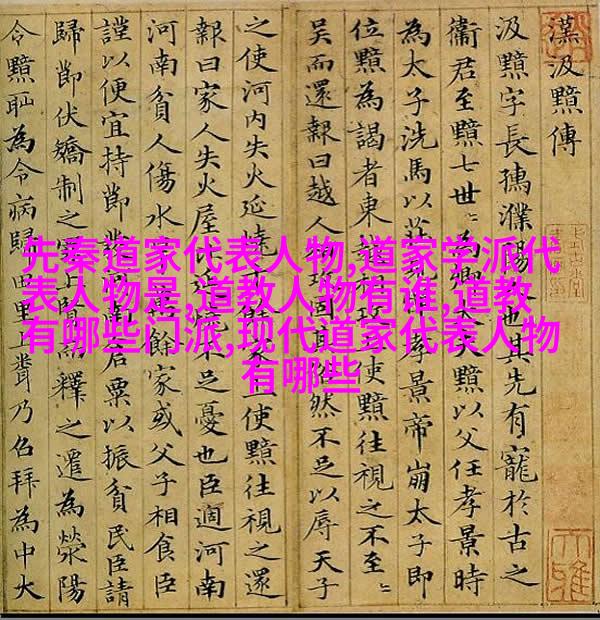 漢汲黯傳
汲黯字長孺濮陽人也其先有寵於古之
衛君至黯七世〻為卿大夫黯以父任孝景時
為太子洗馬以莊見憚孝景帝崩太子即
位黯為謁者東越相攻上使黯往視之不至〻
吴而還報曰越人相攻固其俗然不足以辱天子
之使河内失火延燒千餘家上使黯往視之還
報曰家人失火屋比延燒不足憂也臣過河南
河南貧人傷水旱萬餘家或父子相食臣
謹以便宜持節發河南倉粟以振貧民臣請
歸節伏矯制之罪上賢而釋之遷為滎陽
令黯恥為令病歸田里上聞乃召拜為中大
先秦道家代表人物,道家学派代
表人物是,道教人物有谁,道教
有哪些门派,现代道家代表人物
有哪些